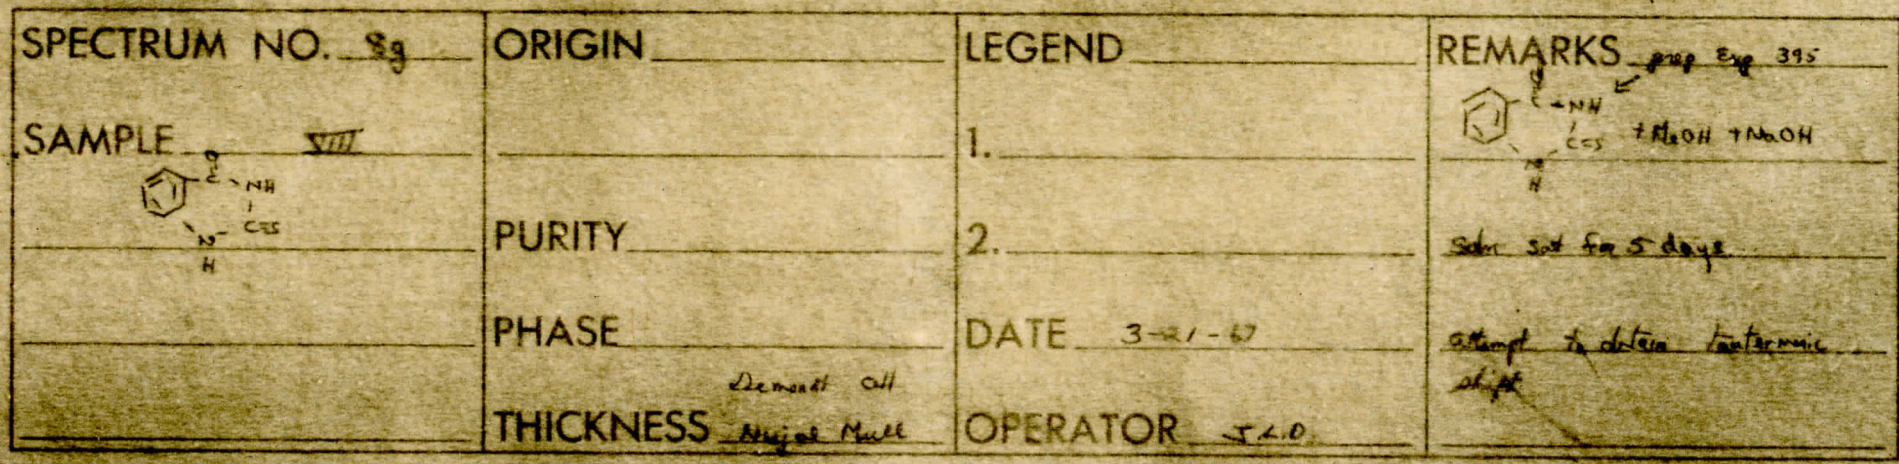 SPECTRUM NO. 8g
SAMPLE VIII
O
C NH
C=S
N
H
ORIGIN
PURITY
PHASE
Demount Cell
THICKNESS Nujol Mull
LEGEND
1.
2.
DATE 3-21-67
OPERATOR J.L.D.
REMARKS prep Exp 395
O
C NH
C=S + MeOH + NaOH
N
H
Soln sat for 5 days
attempt to obtain tautermeric
shift